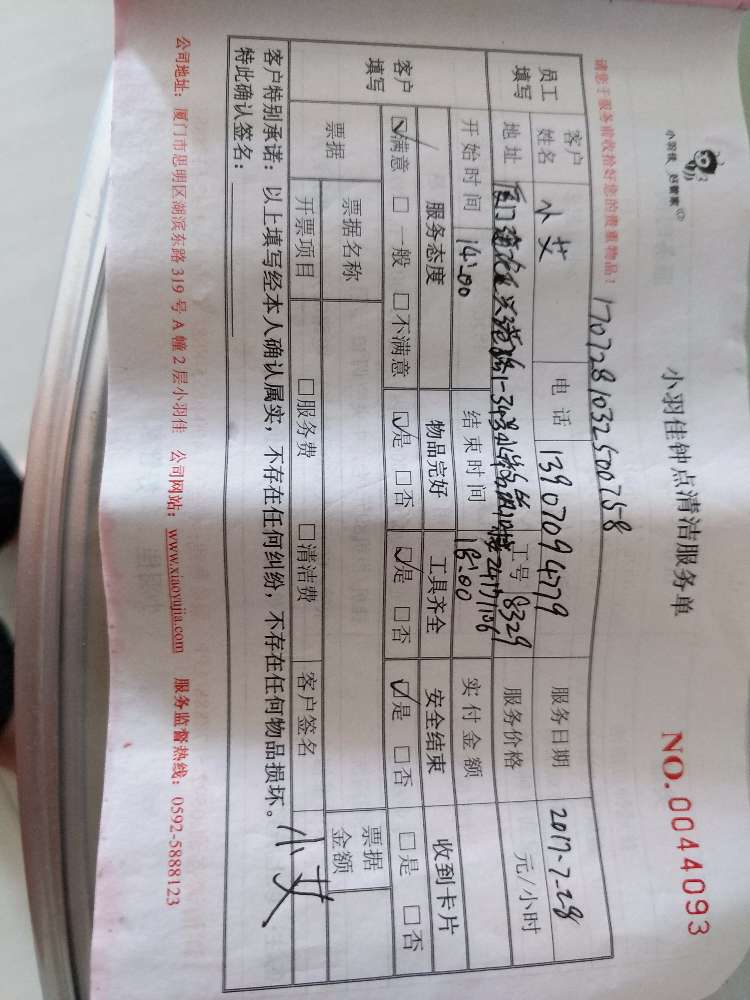 小羽佳 好管家
小羽佳钟点清洁服务单
NO.0044093
请您于服务前收拾好您的贵重物品！ 1707281032500758
员工填写 客户姓名 小艾 电话 13907094779 服务日期 2017-7-28
地址 工号 8329 服务价格 元/小时
开始时间 14:00 结束时间 18:00 实付金额
客户填写 服务态度 物品完好 工具齐全 安全结束 收到卡片
☑满意 □一般 □不满意 ☑是 □否 ☑是 □否 ☑是 □否 □是 □否
票据 票据名称 票据金额
开票项目 □服务费 □清洁费 客户签名 小艾
客户特别承诺：以上填写经本人确认属实，不存在任何纠纷，不存在任何物品损坏。
特此确认签名：
公司地址：厦门市思明区湖滨东路 319 号 A 幢 2 层小羽佳 公司网站：www.xiaoyujia.com 服务监督热线：0592-5888123